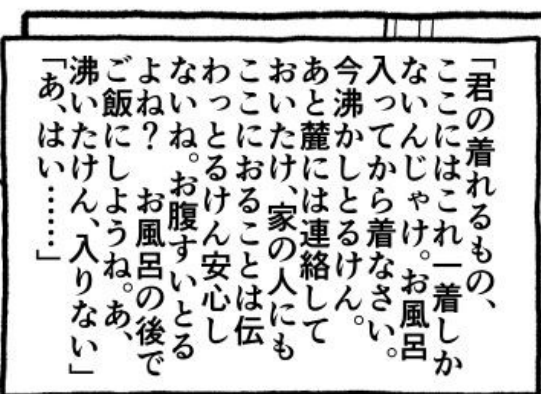 「君の着れるもの、
ここにはこれ一着しか
ないんじゃけ。お風呂
入ってから着なさい。
今沸かしとるけん。
あと麓には連絡して
おいたけ、家の人にも
ここにおることは伝
わっとるけん安心し
ないね。お腹すいとる
よね？　お風呂の後で
ご飯にしようね。あ、
沸いたけん、入りない」
「あ、はい……」